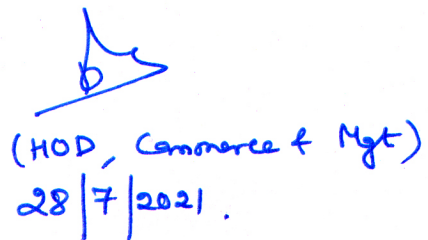 (HOD, Commerce & Mgt)
28|7|2021.